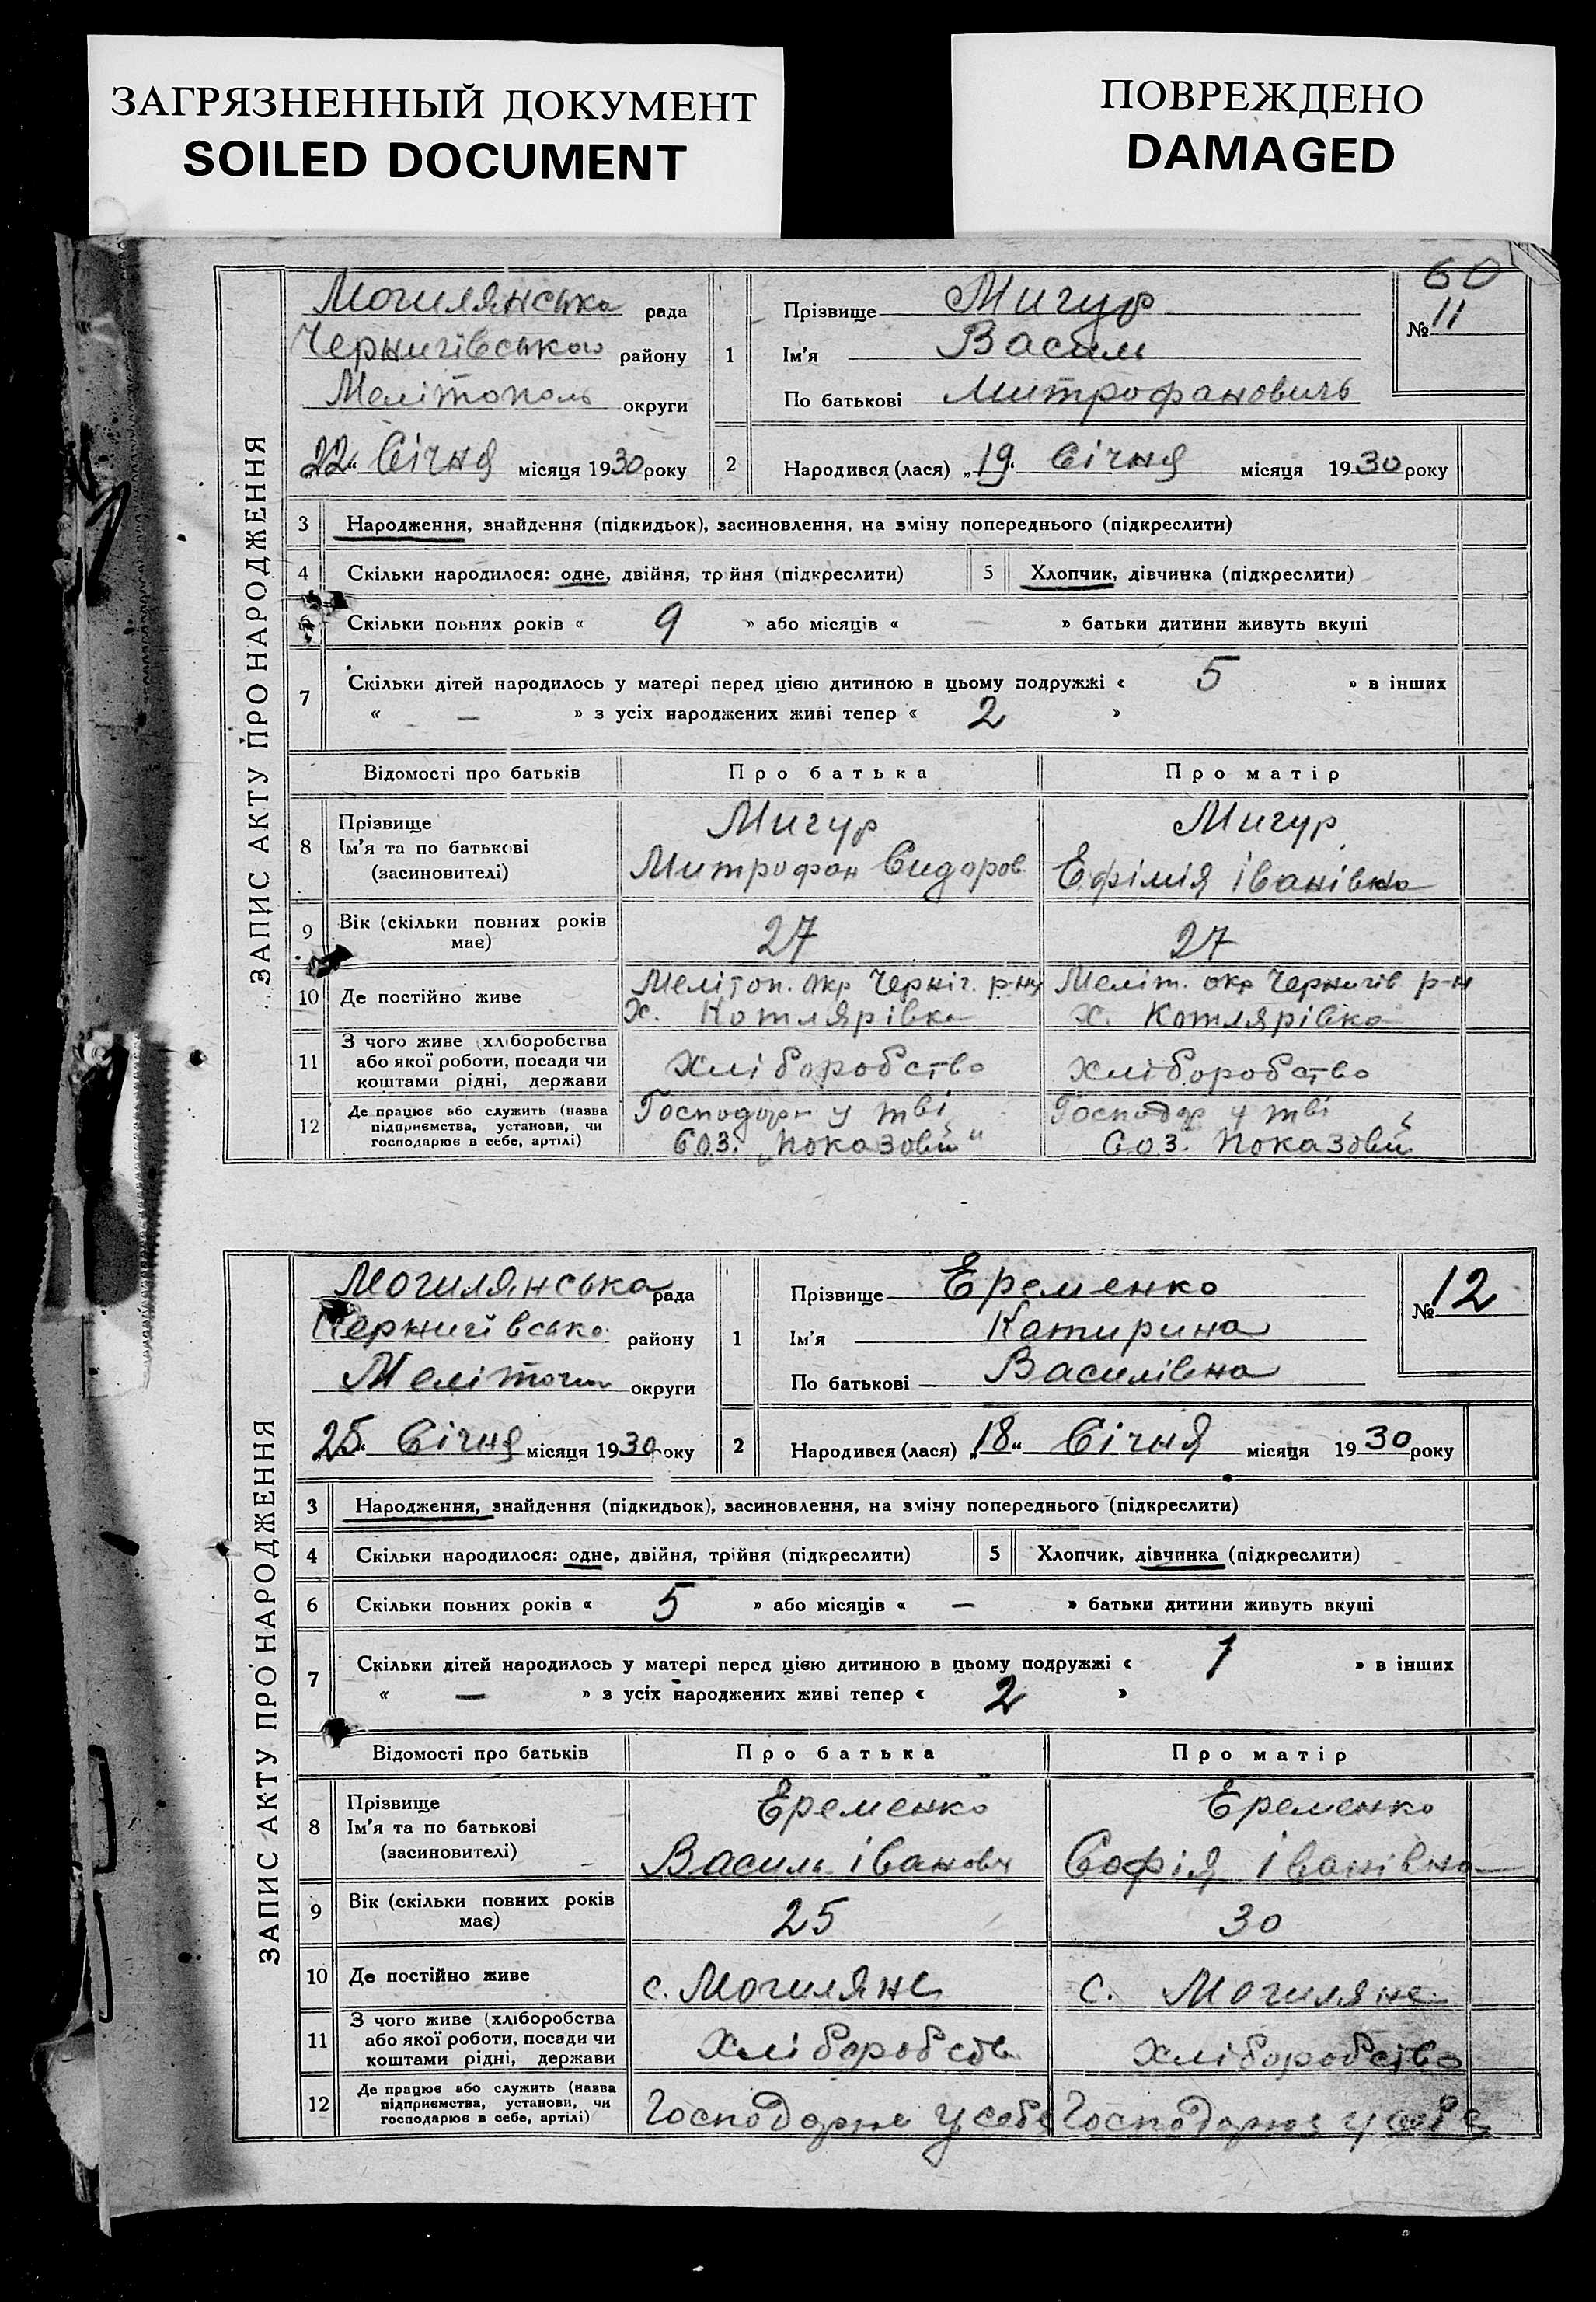 ЗАГРЯЗНЕННЫЙ ДОКУМЕНТ
SOILED DOCUMENT
ПОВРЕЖДЕНО
DAMAGED
60
ЗАПИС АКТУ ПРО НАРОДЖЕННЯ
Могилянська рада
Чернигівського району
Мелітополь округи
22 Січня місяця 1930 року
1 Прізвище Мигур
Ім'я Василь
По батькові Митрофановичь
№ 11
2 Народився (лася) „19“ Січня місяця 1930 року
3 Народження, знайдення (підкидьок), засиновлення, на зміну попереднього (підкреслити)
4 Скільки народилося: одне, двійня, трійня (підкреслити) 5 Хлопчик, дівчинка (підкреслити)
6 Скільки повних років « 9 » або місяців « — » батьки дитини живуть вкупі
7 Скільки дітей народилось у матері перед цією дитиною в цьому подружжі « 5 » в інших
« — » з усіх народжених живі тепер « 2 »
Відомості про батьків Про батька Про матір
8 Прізвище Мигур Мигур
Ім'я та по батькові Митрофан Сидоров Ефімія Іванівна
(засиновителі)
9 Вік (скільки повних років має) 27 27
10 Де постійно живе Мелітоп. окр Черніг. р-ну Меліт. окр Чернигів р-н
Х. Котлярівка Х. Котлярівка
11 З чого живе (хліборобства
або якої роботи, посади чи Хліборобство Хліборобство
коштами рідні, держави
12 Де працює або служить (назва Господар у тві Господар у тві
підприємства, установи, чи
господарює в себе, артілі) Соз. „Показовий“ Соз. Показовий
ЗАПИС АКТУ ПРО НАРОДЖЕННЯ
Могилянська рада
Чернигівсько району
Мелітоп округи
25 Січня місяця 1930 року
1 Прізвище Еременко
Ім'я Катирина
По батькові Василівна
№ 12
2 Народився (лася) „18“ Січня місяця 1930 року
3 Народження, знайдення (підкидьок), засиновлення, на зміну попереднього (підкреслити)
4 Скільки народилося: одне, двійня, трійня (підкреслити) 5 Хлопчик, дівчинка (підкреслити)
6 Скільки повних років « 5 » або місяців « — » батьки дитини живуть вкупі
7 Скільки дітей народилось у матері перед цією дитиною в цьому подружжі « 1 » в інших
« — » з усіх народжених живі тепер « 2 »
Відомості про батьків Про батька Про матір
8 Прізвище Еременко Еременко
Ім'я та по батькові Василь Іванович Софія Іванівна
(засиновителі)
9 Вік (скільки повних років має) 25 30
10 Де постійно живе с. Могиляне с. Могиляне
11 З чого живе (хліборобства
або якої роботи, посади чи Хліборобств Хліборобство
коштами рідні, держави
12 Де працює або служить (назва
підприємства, установи, чи Господарює у собе Господарює у собе
господарює в себе, артілі)